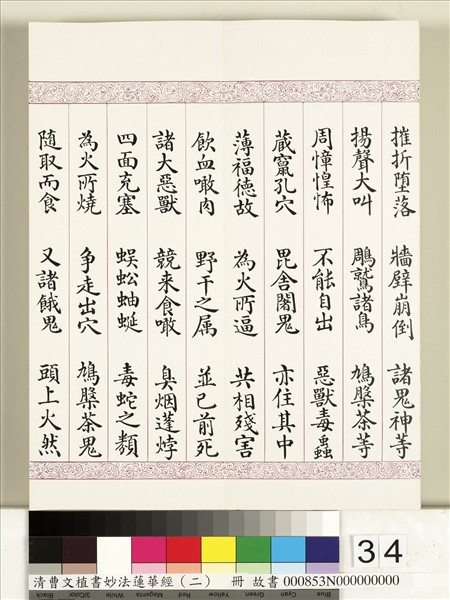 摧折堕落 牆壁崩倒 諸鬼神等
揚聲大叫 鵰鷲諸鳥 鳩槃茶等
周慞惶怖 不能自出 惡獸毒蟲
蔵竄孔穴 毘舎闍鬼 亦住其中
薄福德故 為火所逼 共相殘害
飲血噉肉 野干之属 並已前死
諸大惡獸 競来食噉 臭烟蓬㶿
四面充塞 蜈蚣蚰蜒 毒蛇之類
為火所燒 争走出穴 鳩槃茶鬼
随取而食 又諸餓鬼 頭上火然
34
Black 3/Color White Magenta Red Yellow Green Cyan Blue
清曹文植書妙法蓮華經（二） 冊 故書 000853N000000000